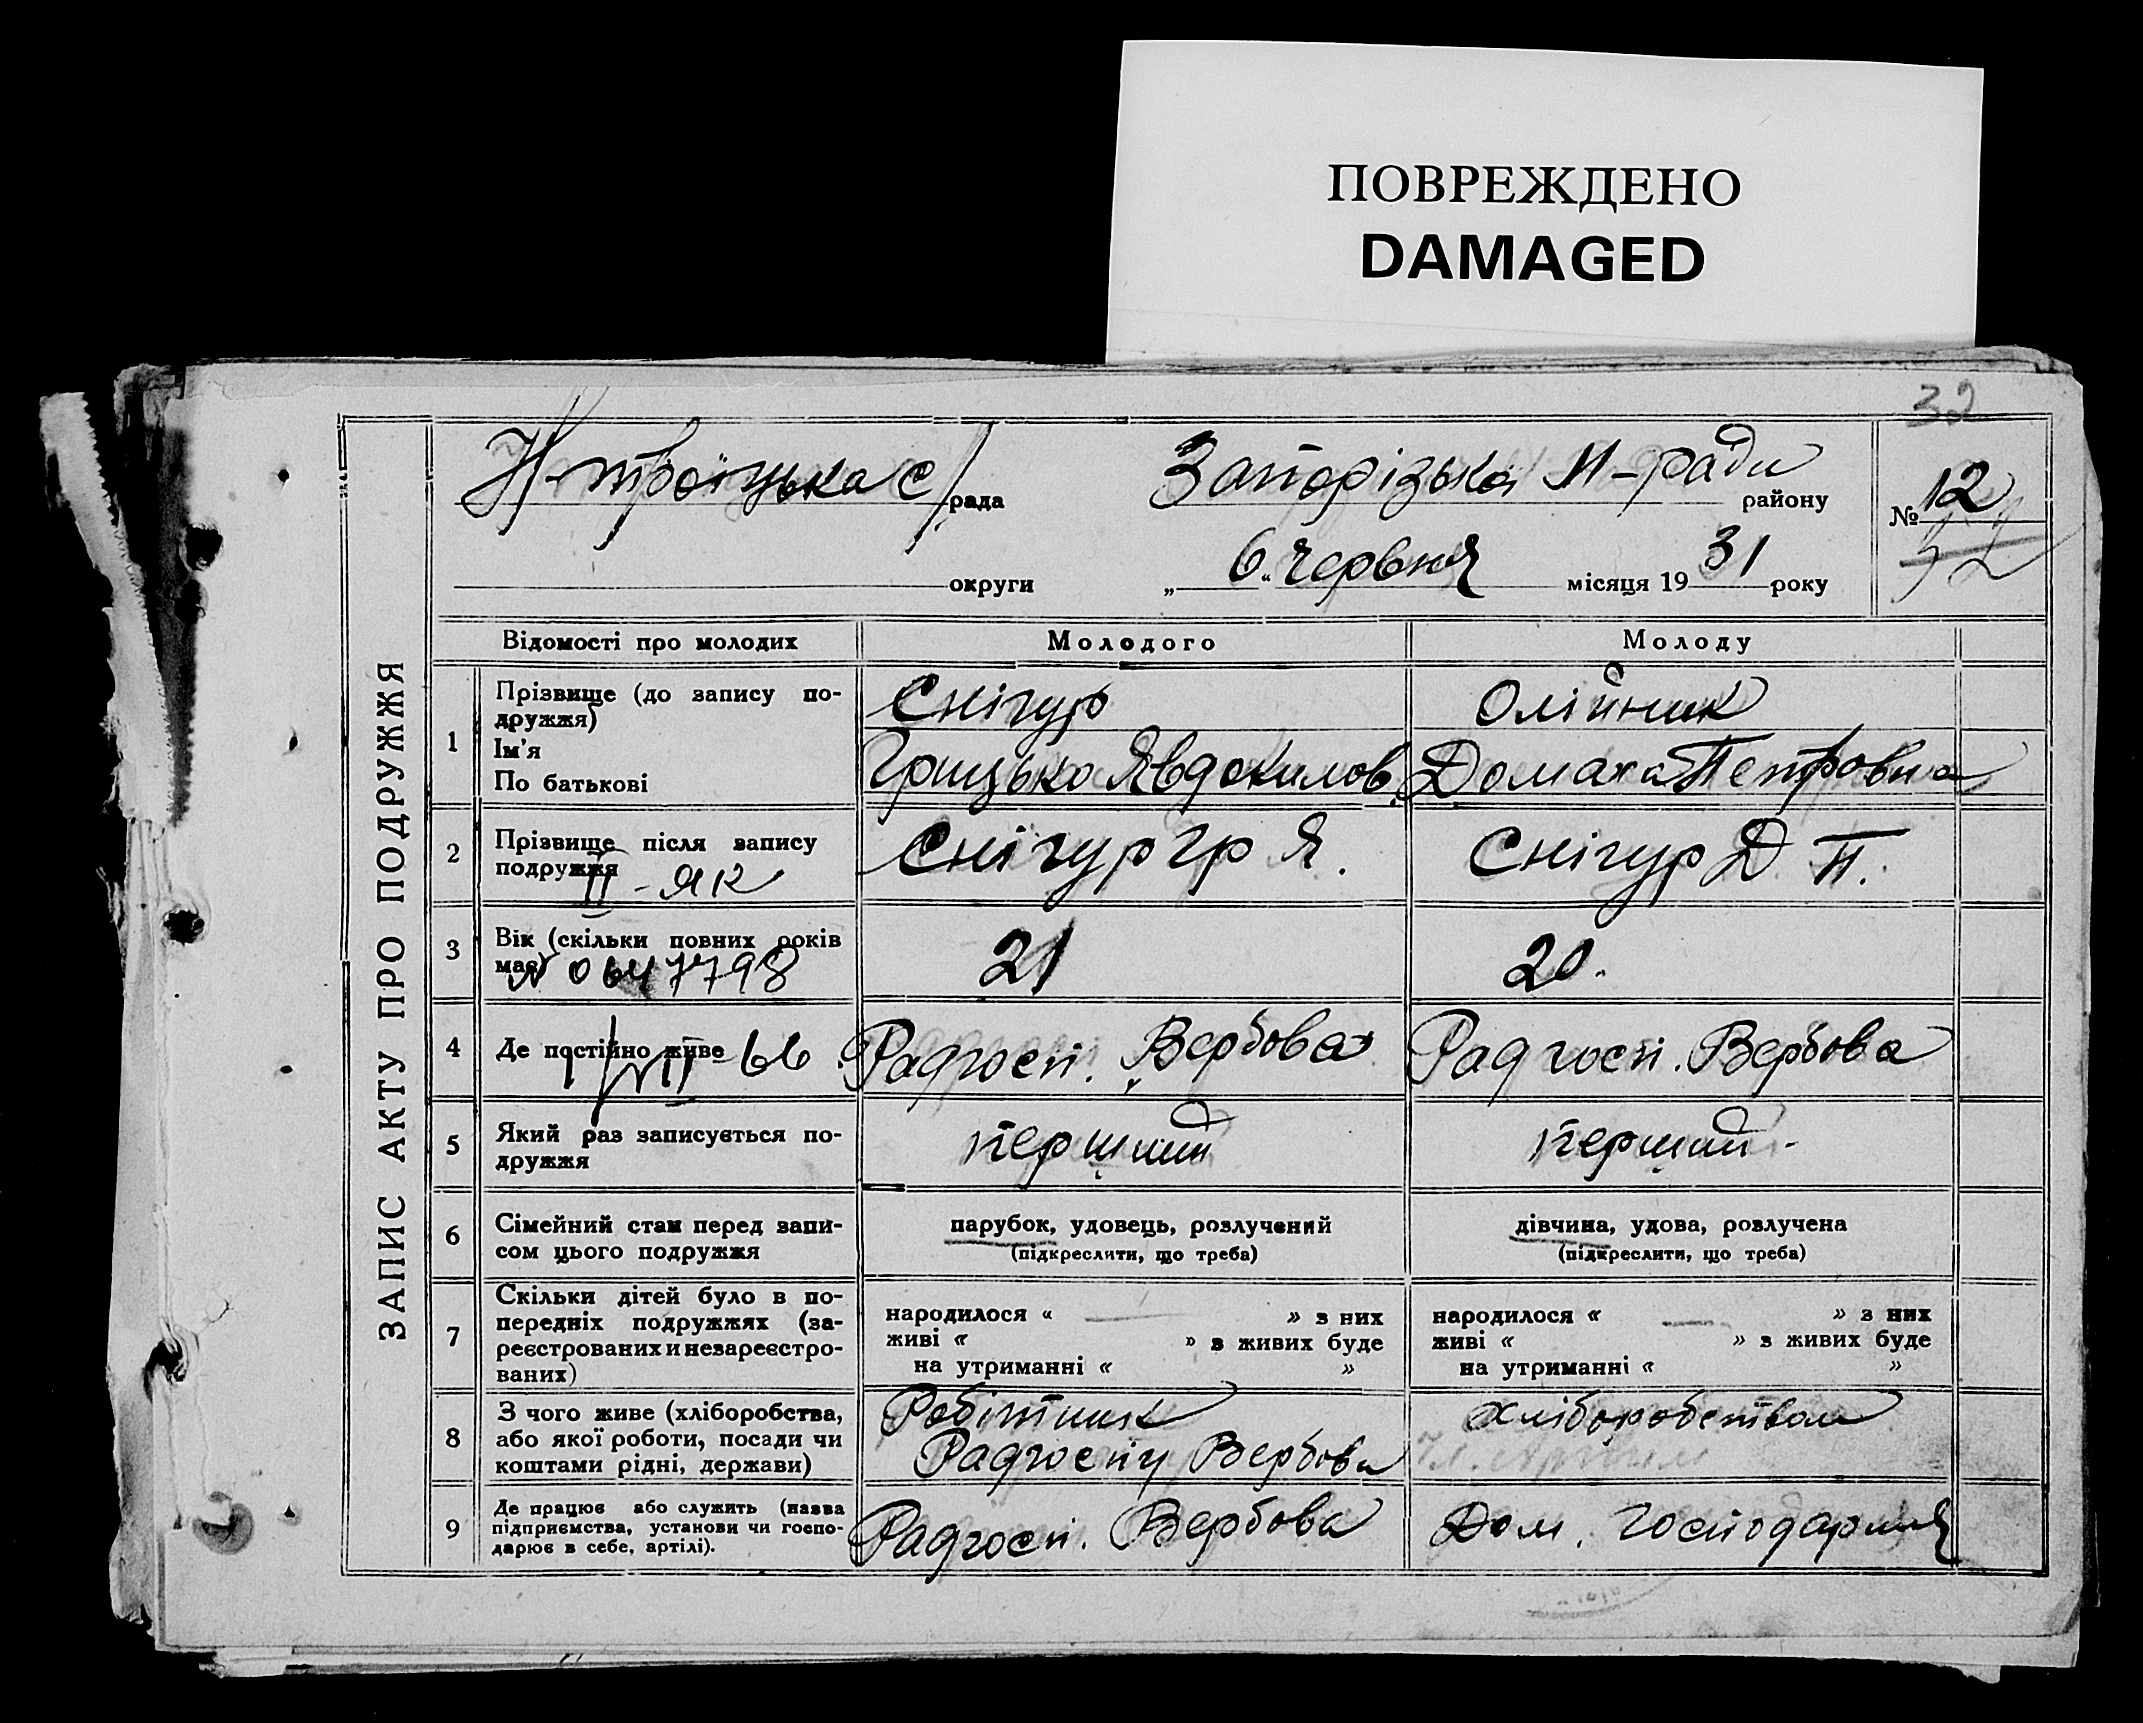 ПОВРЕЖДЕНО
DAMAGED
32
Н-Троїцька с/рада
Запорізької М-ради району
№ 12
32
округи
„ 6 “ червня місяця 1931 року
ЗАПИС АКТУ ПРО ПОДРУЖЖЯ
Відомості про молодих Молодого Молоду
1
Прізвище (до запису по-
дружжя)
Ім'я
По батькові
Снігур
Грицько Явдокимов.
Олійник
Домаха Петровна
2
Прізвище після запису
подружжя
II-ЯК
Снігур Гр Я.
Снігур Д П.
3
Вік (скільки повних років
має)
№ 0647798
21
20.
4
Де постійно живе
1/VII-66
Радгосп. Вербова
Радгосп. Вербова
5
Який раз записується по-
дружжя
перший
перший -
6
Сімейний стан перед запи-
сом цього подружжя
парубок, удовець, розлучений
(підкреслити, що треба)
дівчина, удова, розлучена
(підкреслити, що треба)
7
Скільки дітей було в по-
передніх подружжях (за-
реєстрованих и незареєстро-
ваних)
народилося « — » з них
живі « » з живих буде
на утриманні « »
народилося « — » з них
живі « » з живих буде
на утриманні « »
8
З чого живе (хліборобства,
або якої роботи, посади чи
коштами рідні, держави)
Робітник
Радгоспу Вербова
хліборобством
9
Де працює або служить (назва
підприємства, установи чи госпо-
дарює в себе, артілі).
Радгосп. Вербова
Дом. Господарння